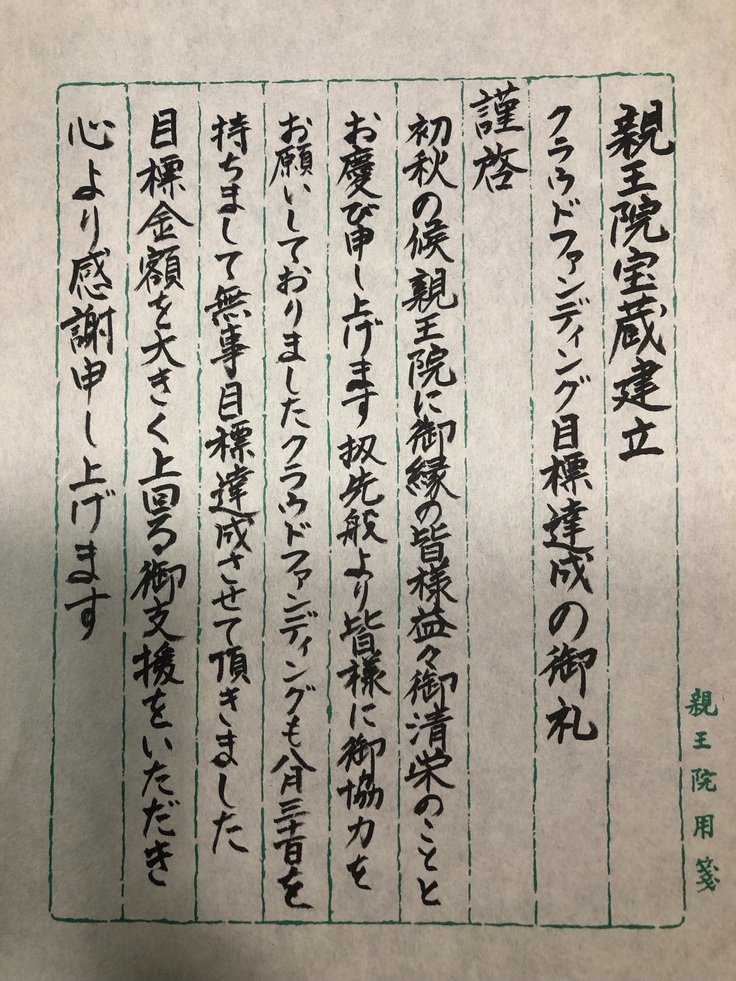 親王院宝蔵建立
クラウドファンディング目標達成の御礼
謹啓
初秋の候親王院に御縁の皆様益々御清栄のことと
お慶び申し上げます扨先般より皆様に御協力を
お願いしておりましたクラウドファンディングも八月三十一日を
持ちまして無事目標達成させて頂きました
目標金額を大きく上回る御支援をいただき
心より感謝申し上げます
親王院用箋